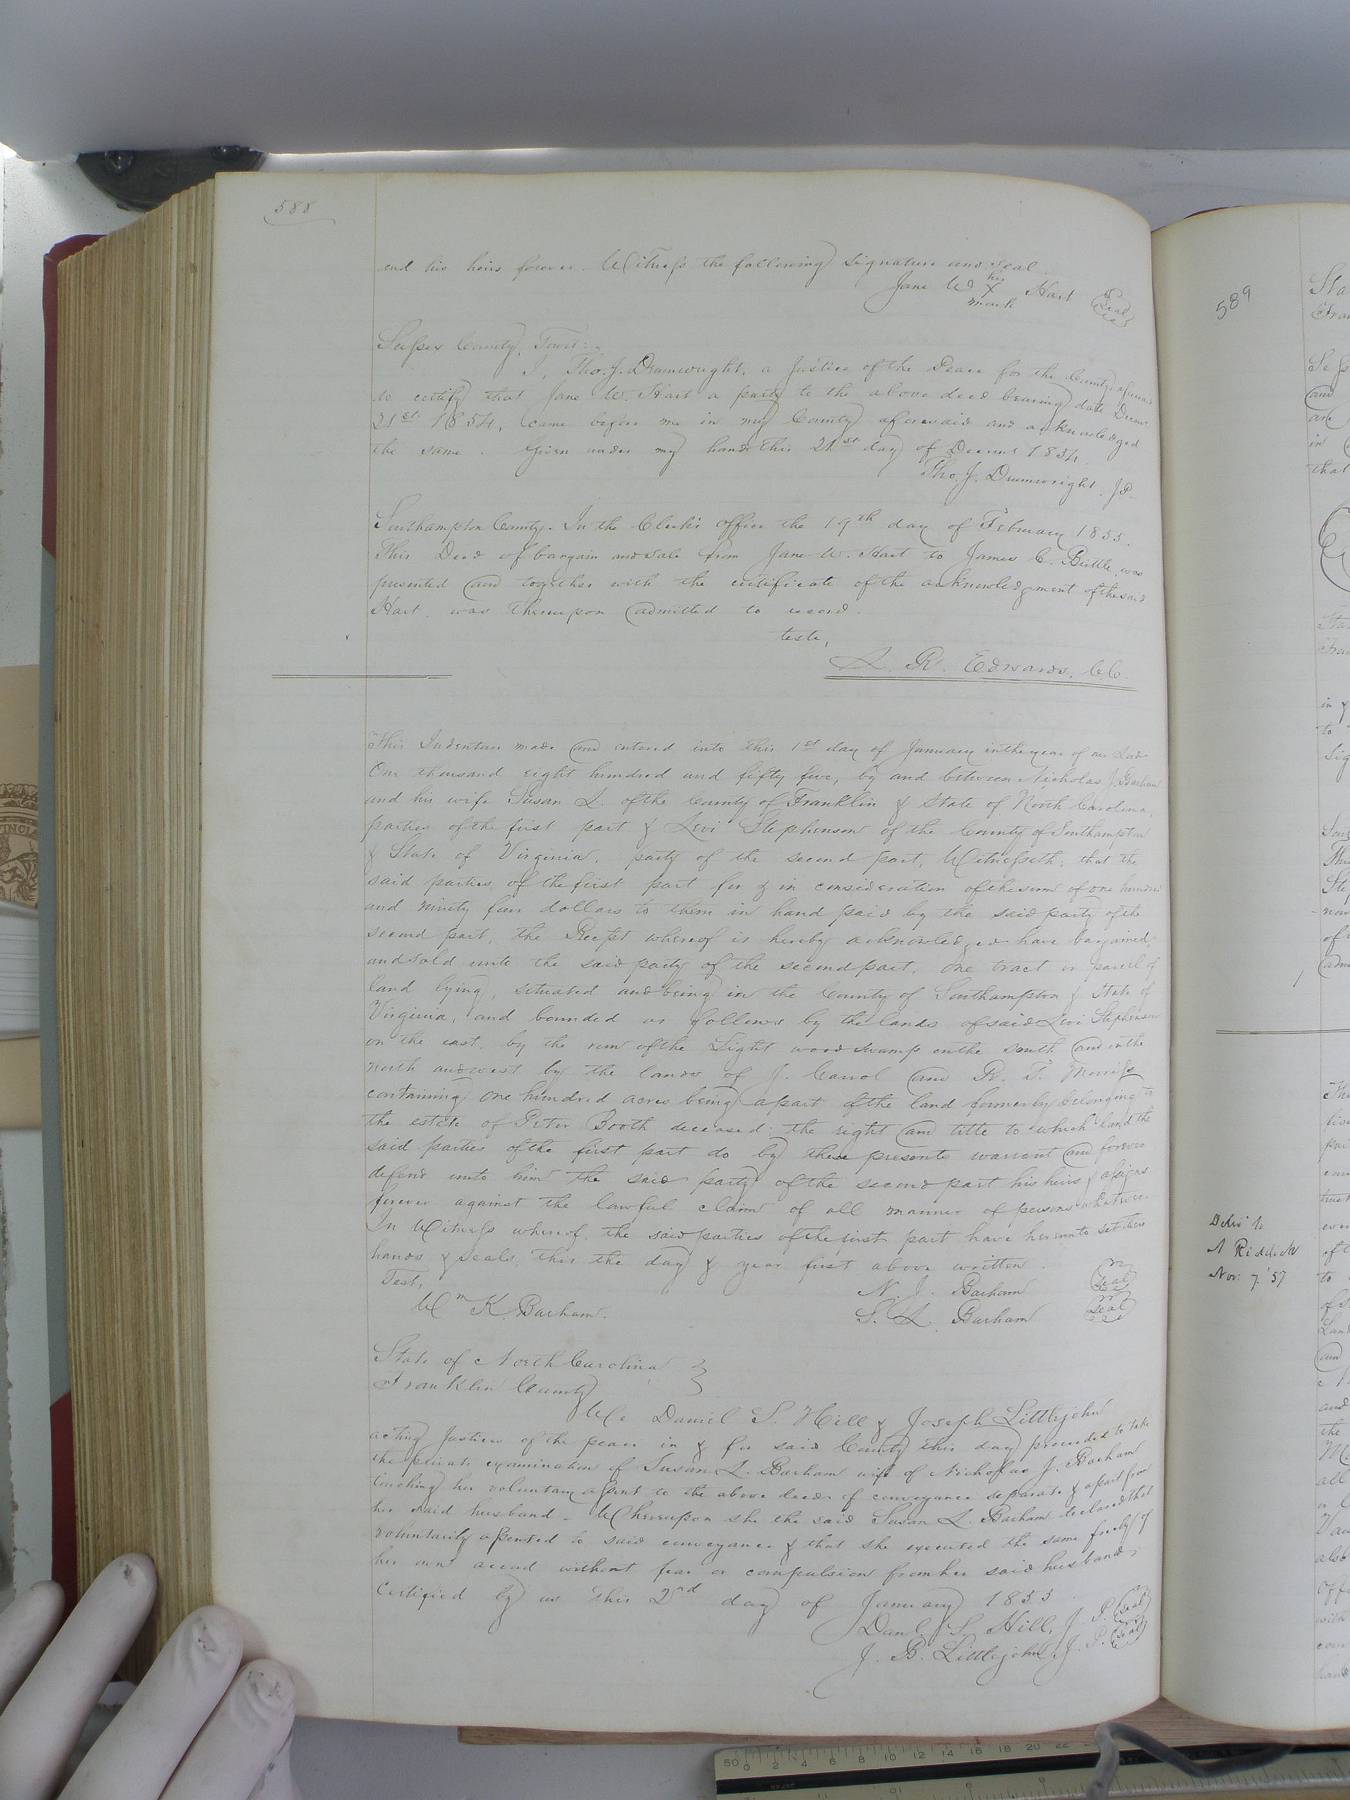 588
and his heirs forever. Witness the following signature and seal
his
Jane W X Hart Seal
mark
Sussex County, Towit:
I, Tho. J. Drumwright, a Justice of the Peace for the County aforesaid
do certify that Jane W. Hart a party to the above deed bearing date
21st 1854, came before me in my County aforesaid and acknowledged
the same. Given under my hand this 21st day of 1854
Tho. J. Drumwright. JP.
Southampton County. In the Clerk's office the 19th day of February 1855.
This Deed of bargain and sale from Jane W. Hart to James C. Bittle was
presented and together with the certificate of the acknowledgment of the said
Hart was thereupon admitted to record
teste,
L. R. Edwards, C.C.
This Indenture made and entered into this 1st day of January in the year of our Lord
One thousand eight hundred and fifty five, by and between Nicholas J. Barham
and his wife Susan L. of the County of Franklin & State of North Carolina,
parties of the first part & Levi Stephenson of the County of Southampton
& State of Virginia, party of the second part, Witnesseth, that the
said parties of the first part for & in consideration of the sum of one hundred
and ninety four dollars to them in hand paid by the said party of the
second part, the Recept whereof is hereby acknowledged have bargained
and sold unto the said party of the second part, One tract or parcel of
land lying, situated and being in the County of Southampton & State of
Virginia, and bounded as follows by the lands of said Levi Stephenson
on the east, by the run of the Light wood swamp on the south and on the
north and west by the lands of J. Carrol and R. T. Merriss
containing one hundred acres being a part of the land formerly belonging to
the estate of Peter Booth deceased: the right and title to which land the
said parties of the first part do by these presents warrant and forever
defend unto him the said party of the second part his heirs & assigns
forever against the lawful claim of all manner of persons whatever.
In Witness whereof, the said parties of the first part have hereunto set their
hands & seals this the day & year first above written.
Test,
N. J. Barham Seal
Wm K. Barham.
S. L. Barham Seal
State of North Carolina }
Franklin County
We Daniel S. Hill & Joseph Littlejohn
acting Justices of the peace in & for said County this day proceeded to take
the private examination of Susan L. Barham wife of Nicholas J. Barham
touching her voluntary assent to the above deed of conveyance separate & apart from
her said husband. Whereupon she the said Susan L. Barham declared that
voluntarily assented to said conveyance & that she executed the same freely of
her own accord without fear or compulsion from her said husband;
Certified by us this 2nd day of January 1855
Danl. S. Hill, J. P. Seal
J. B. Littlejohn, J. P. Seal
589
Delvd to
A Riddick
Nov. 7. '57